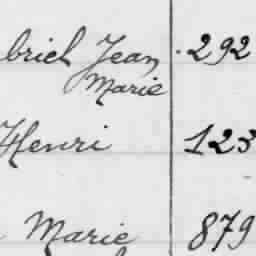 briel Jean 292
Marie
Henri 123
Marie 879